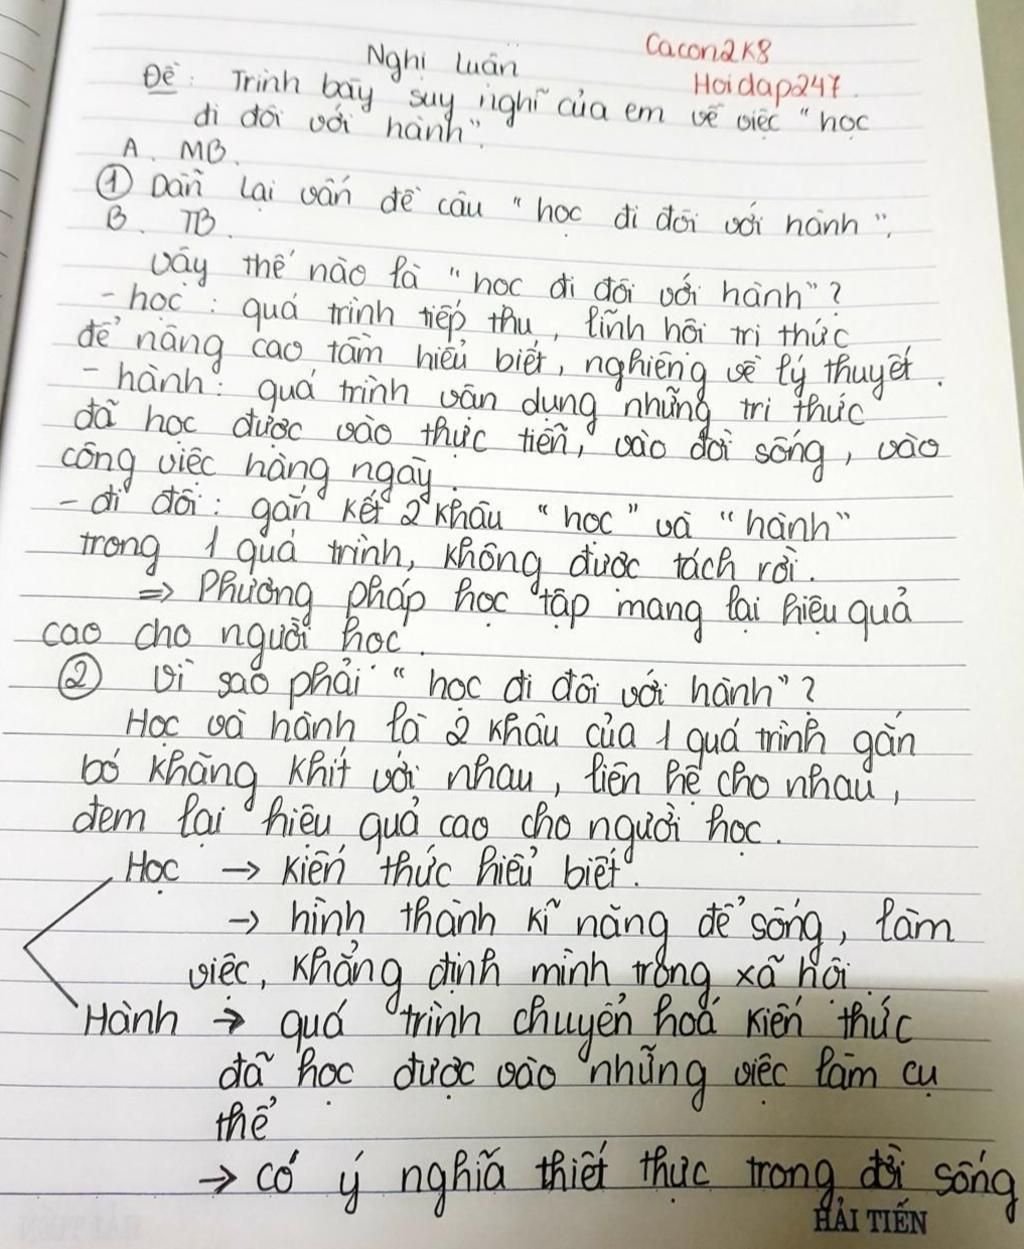 Nghị luận
Cacon2K8
Hoidap247.
Đề: Trình bày suy nghĩ của em về việc "học
đi đôi với hành".
A. MB.
① Dẫn lại vấn đề câu "học đi đôi với hành".
B. TB.
Vậy thế nào là "học đi đôi với hành"?
- học: quá trình tiếp thu, lĩnh hội tri thức
để nâng cao tầm hiểu biết, nghiêng về lý thuyết.
- hành: quá trình vận dụng những tri thức
đã học được vào thực tiễn, vào đời sống, vào
công việc hàng ngày.
- đi đôi: gắn kết 2 khâu "học" và "hành"
trong 1 quá trình, không được tách rời.
=> Phương pháp học tập mang lại hiệu quả
cao cho người học.
② Vì sao phải "học đi đôi với hành"?
Học và hành là 2 khâu của 1 quá trình gắn
bó khăng khít với nhau, liên hệ cho nhau,
đem lại hiệu quả cao cho người học.
Học → kiến thức hiểu biết.
→ hình thành kĩ năng để sống, làm
việc, khẳng định mình trong xã hội.
Hành → quá trình chuyển hoá kiến thức
đã học được vào những việc làm cụ
thể
→ có ý nghĩa thiết thực trong đời sống
HẢI TIẾN